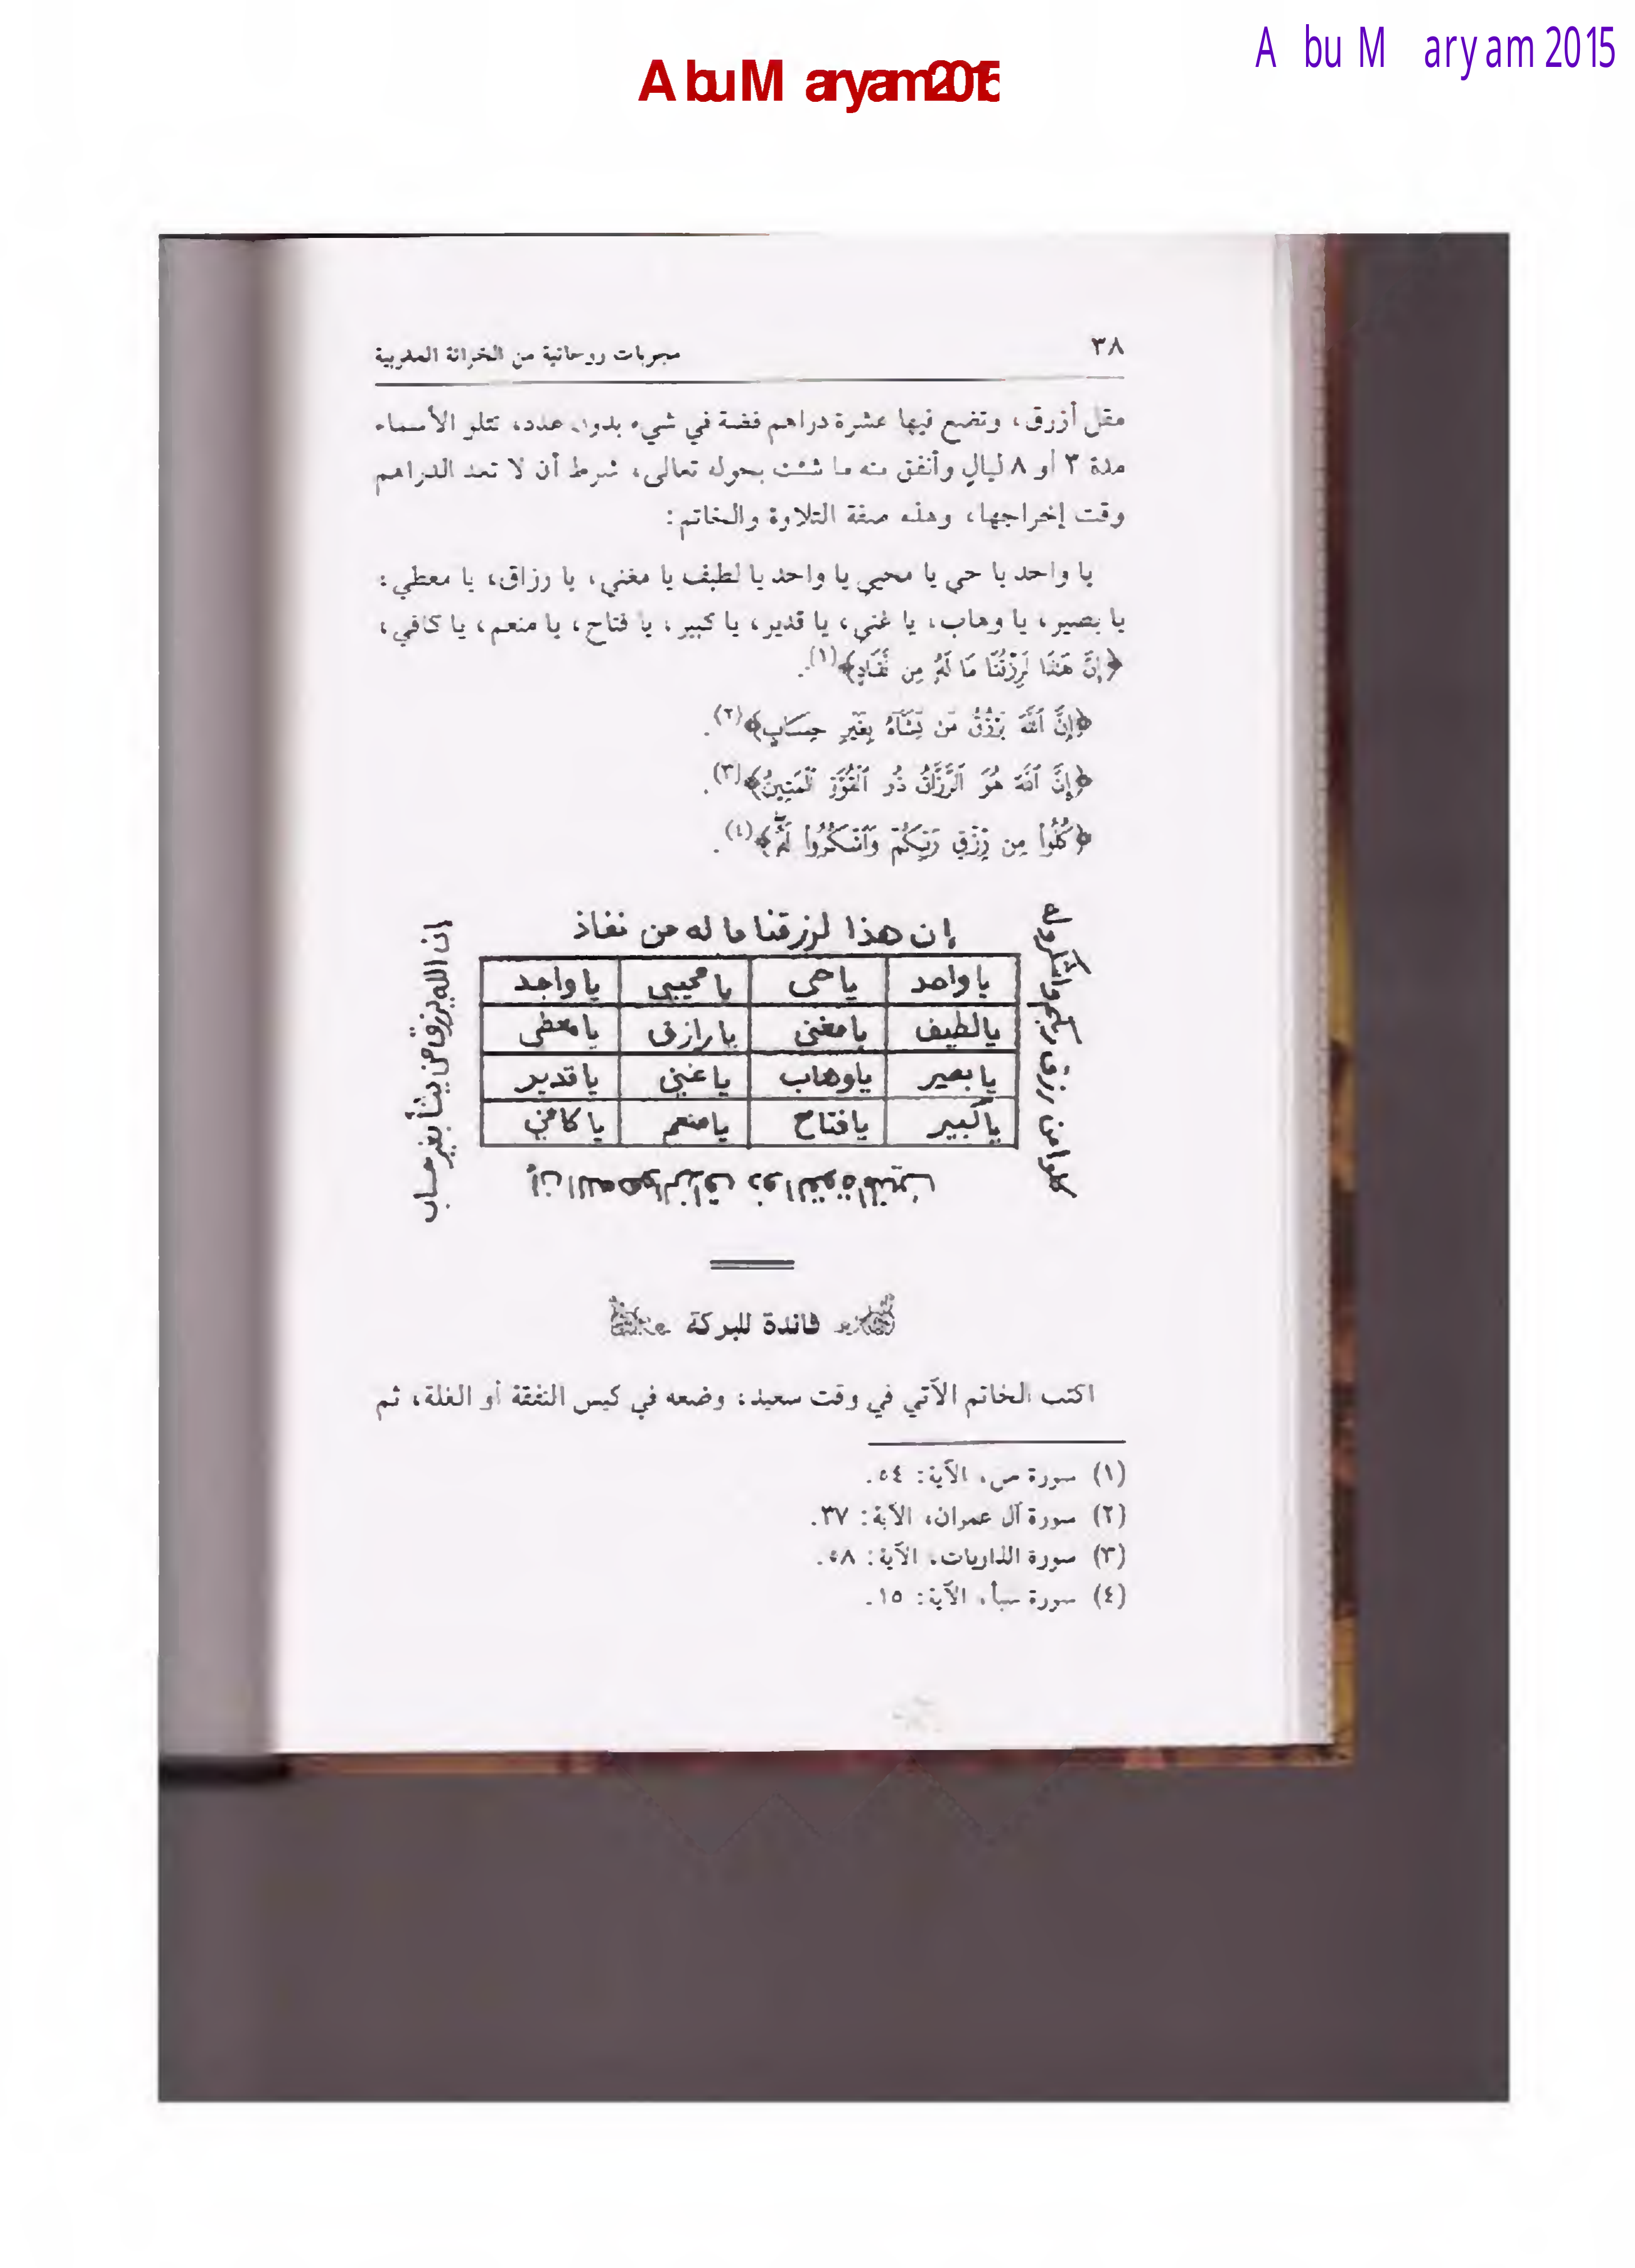 Abu Maryam 2015
Abu Maryam 2015
مجربات روحانية من الخزانة المغربية
٣٨
مقل أزرق، وتضع فيها عشرة دراهم فضة في شيء بدون عدد، تتلو الأسماء
مدة ٣ أو ٨ ليالٍ وأنفق منه ما شئت بحوله تعالى، شرط أن لا تعد الدراهم
وقت إخراجها، وهذه صفة التلاوة والخاتم:
يا واحد يا حي يا محيي يا واحد يا لطيف يا مغني، يا رزاق، يا معطي،
يا بصير، يا وهاب، يا غني، يا قدير، يا كبير، يا فتاح، يا منعم، يا كافي،
﴿إِنَّ هَٰذَا لَرِزْقُنَا مَا لَهُ مِن نَّفَادٍ﴾(١).
﴿إِنَّ ٱللَّهَ يَرْزُقُ مَن يَشَآءُ بِغَيْرِ حِسَابٍ﴾(٢).
﴿إِنَّ ٱللَّهَ هُوَ ٱلرَّزَّاقُ ذُو ٱلْقُوَّةِ ٱلْمَتِينُ﴾(٣).
﴿كُلُوا۟ مِن رِّزْقِ رَبِّكُمْ وَٱشْكُرُوا۟ لَهُۥ﴾(٤).
إن هذا لرزقنا ما له من نفاذ
يا واحد يا حي يا محيي يا واجد
يا لطيف يا مغني يا رازق يا معطي
يا بصير يا وهاب يا غني يا قدير
يا كبير يا فتاح يا منعم يا كافي
كلوا من رزق ربكم واشكروا له
إن الله هو الرزاق ذو القوة المتين
إن الله يرزق من يشأ بغير حساب
فائدة للبركة
اكتب الخاتم الآتي في وقت سعيد، وضعه في كيس النفقة أو الغلة، ثم
(١) سورة ص، الآية: ٥٤.
(٢) سورة آل عمران، الآية: ٣٧.
(٣) سورة الذاريات، الآية: ٥٨.
(٤) سورة سبأ، الآية: ١٥.